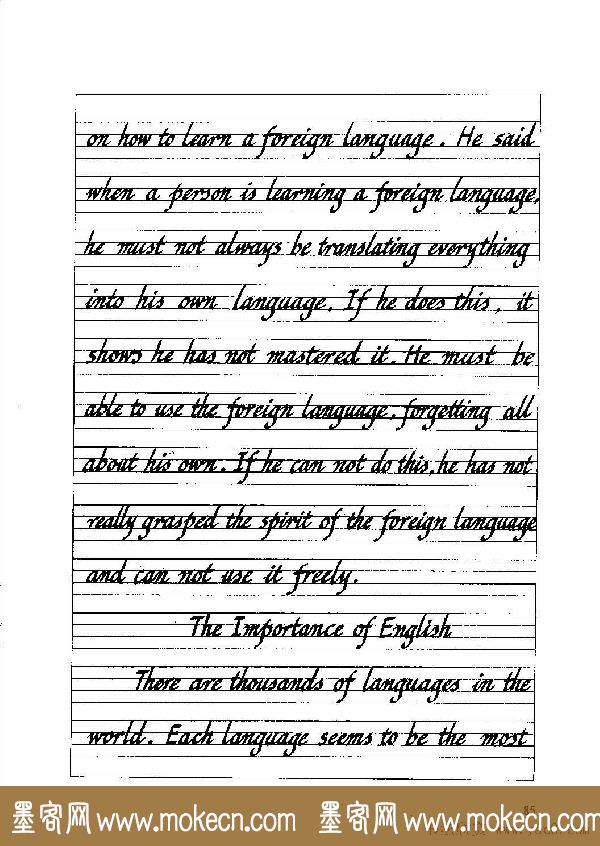 on how to learn a foreign language. He said
when a person is learning a foreign language,
he must not always be translating everything
into his own language. If he does this, it
shows he has not mastered it. He must be
able to use the foreign language, forgetting all
about his own. If he can not do this, he has not
really grasped the spirit of the foreign language
and can not use it freely.
The Importance of English
There are thousands of languages in the
world. Each language seems to be the most
85
墨客网 www.mokecn.com 墨客网 www.mokecn.com